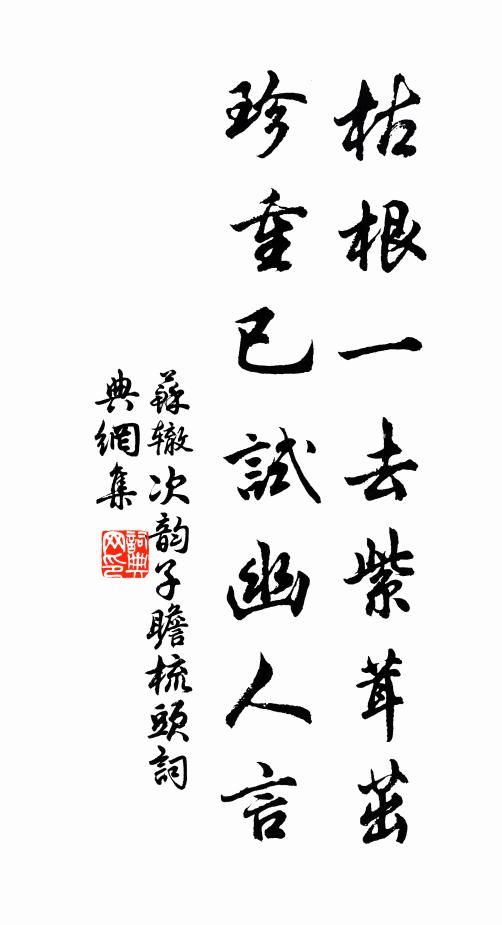 枯根一去紫茸茁
珍重已試幽人言
蘇轍次韵子瞻梳頭詞
典網集
詞典网印